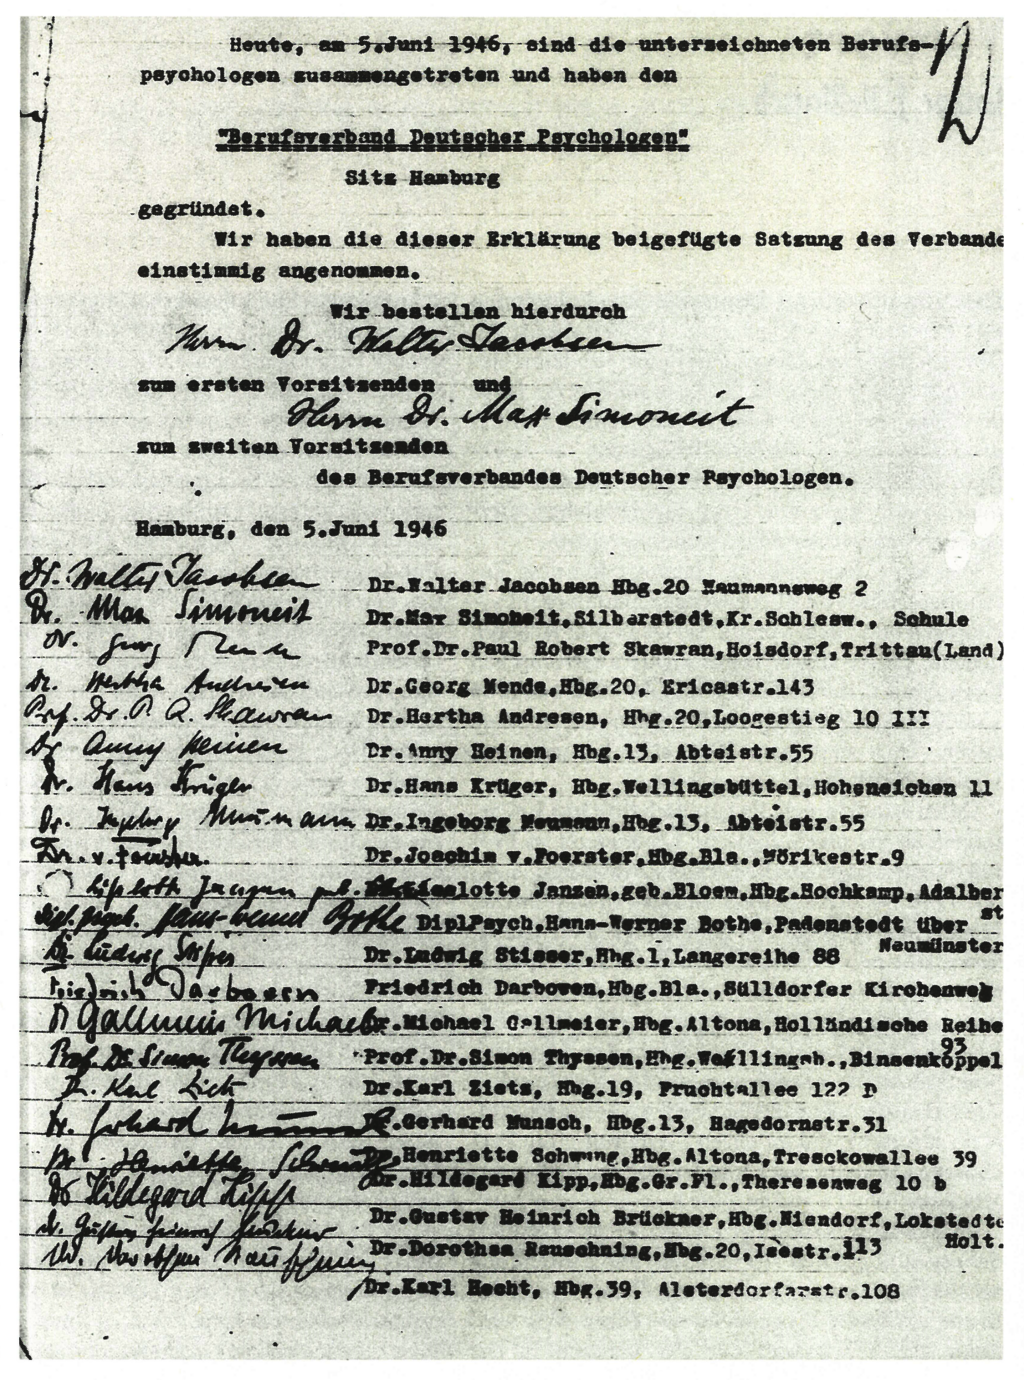 Heute, am 5.Juni 1946, sind die unterzeichneten Berufs-
psychologen zusammengetreten und haben den
"Berufsverband Deutscher Psychologen"
Sitz Hamburg
gegründet.
Wir haben die dieser Erklärung beigefügte Satzung des Verbande
einstimmig angenommen.
Wir bestellen hierdurch
Herrn Dr. Walter Jacobsen
zum ersten Vorsitzenden und
Herrn Dr. Max Simoneit
zum zweiten Vorsitzenden
des Berufsverbandes Deutscher Psychologen.
Hamburg, den 5.Juni 1946
Dr. Walter Jacobsen Dr.Walter Jacobsen Hbg.20 Naumannsweg 2
Dr. Max Simoneit Dr.Max Simoneit,Silberstedt,Kr.Schlesw., Schule
Dr. Georg Prof.Dr.Paul Robert Skawran,Hoisdorf,Trittau(Land)
Dr. Hertha Andresen Dr.Georg Mende,Hbg.20, Ericastr.143
Prof. Dr. P. R. Skawran Dr.Hertha Andresen, Hbg.20,Loogestieg 10 III
Dr Anny Heinen Dr.Anny Heinen, Hbg.13, Abteistr.55
Dr. Hans Krüger Dr.Hans Krüger, Hbg.Wellingsbüttel,Hoheneichen 11
Dr. Ingeborg Neumann Dr.Ingeborg Neumann,Hbg.13, Abteistr.55
Dr. v. Foerster. Dr.Joachim v.Foerster,Hbg.Bla.,Mörikestr.9
Liselotte Jansen geb. Lieselotte Jansen,geb.Bloem,Hbg.Hochkamp,Adalber
st
Dipl. Psych. Hans-Werner Bothe DiplPsych.Hans-Werner Bothe,Padenstedt über
Neumünster
Dr. Ludwig Dr.Ludwig Stisser,Hbg.1,Langereihe 88
Friedrich Darboven Friedrich Darboven,Hbg.Bla.,Sülldorfer Kirchenweg
Dr Gallmeier Michael Dr.Michael Gallmeier,Hbg.Altona,Holländische Reihe
93
Prof. Dr. Simon Thyssen Prof.Dr.Simon Thyssen,Hbg.Wellingsb.,Binsenkoppel
Dr. Karl Zietz Dr.Karl Zietz, Hbg.19, Fruchtallee 122 D
Dr. Gerhard Munsch Dr.Gerhard Munsch, Hbg.13, Hagedornstr.31
Dr. Henriette Schwung Dr.Henriette Schwung,Hbg.Altona,Tresckowallee 39
Dr Hildegard Kipp Dr.Hildegard Kipp,Hbg.Gr.Fl.,Theresenweg 10 b
Dr. Gustav Heinrich Brückner Dr.Gustav Heinrich Brückner,Hbg.Niendorf,Lokstedte
Holt.
Dr. Dorothea Rauschning Dr.Dorothea Rauschning,Hbg.20,Isestr.113
Dr.Karl Hecht, Hbg.39, Alsterdorferstr.108